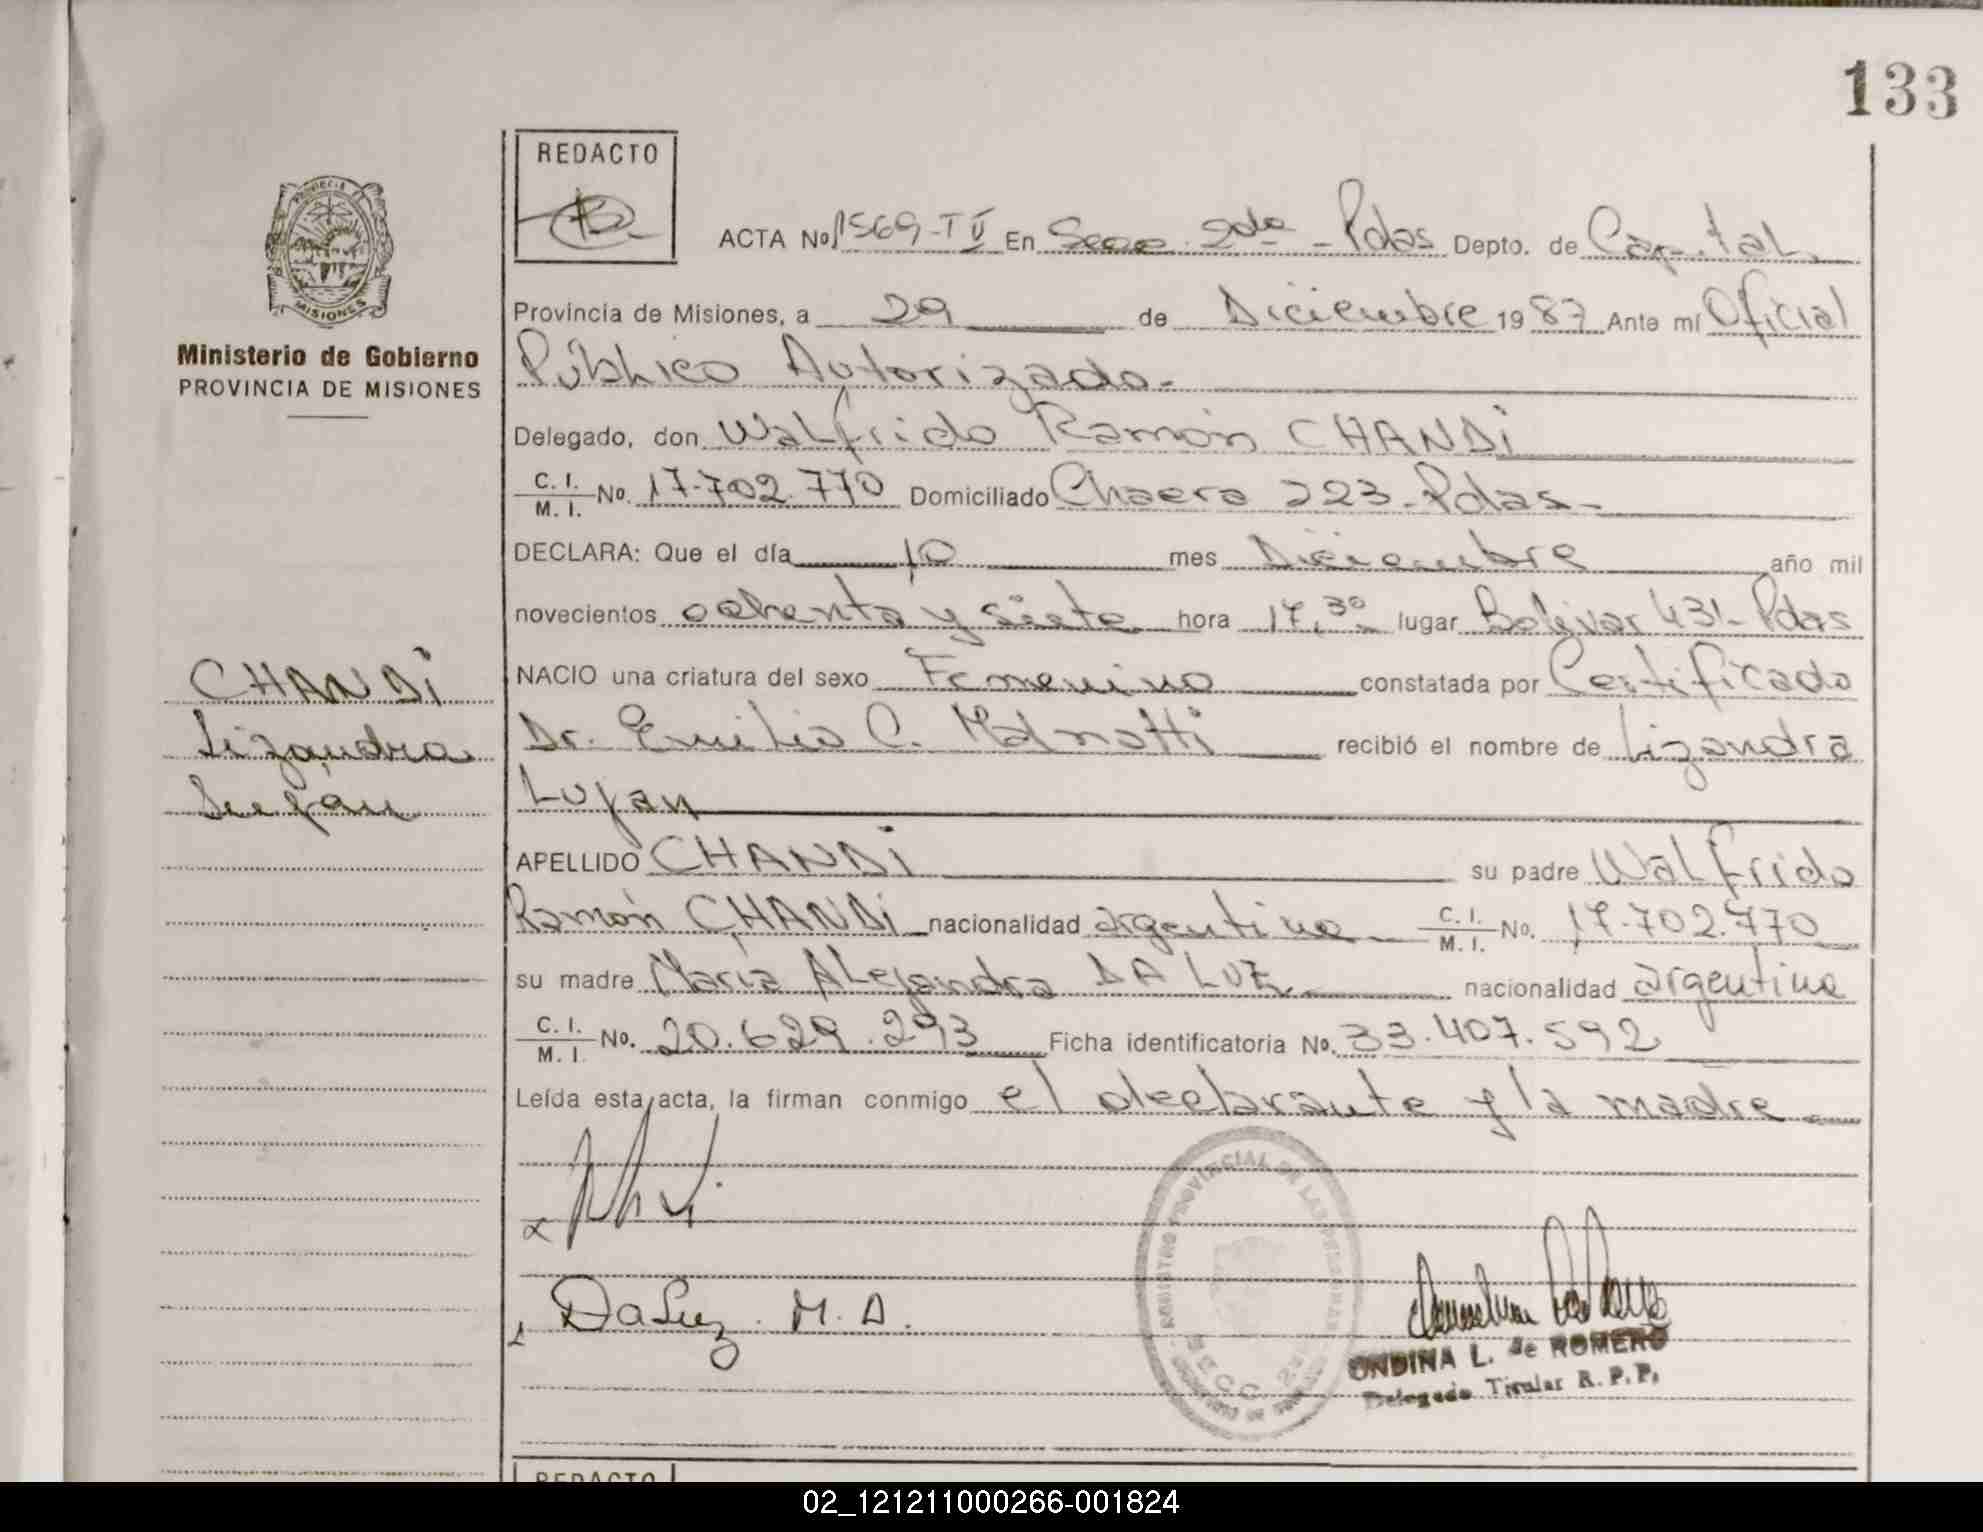 133
REDACTO
ACTA No 1569-T V En Secc 2da - Pdas Depto. de Capital
Provincia de Misiones, a 29 de Diciembre 19 87 Ante mí Oficial
Público Autorizado.-
PROVINCIA
MISIONES
Ministerio de Gobierno
PROVINCIA DE MISIONES
Delegado, don Walfrido Ramón CHANDI
C. I. M. I. No. 17.702.770 Domiciliado Chacra 223 - Pdas -
DECLARA: Que el día 10 mes Diciembre año mil
novecientos ochenta y siete hora 17,30 lugar Bolívar 431 - Pdas
NACIO una criatura del sexo Femenino constatada por Certificado
Dr. Emilio C. Malnatti recibió el nombre de Lizandra
Lujan
CHANDI
Lizandra
Lujan
APELLIDO CHANDI su padre Walfrido
Ramón CHANDI nacionalidad argentina C. I. M. I. No. 17.702.770
su madre María Alejandra DA LUZ nacionalidad argentina
C. I. M. I. No. 20.629.293 Ficha identificatoria No. 33.407.592
Leída esta acta, la firman conmigo el declarante y la madre
Da Luz. M. A.
REGISTRO PROVINCIAL DE LAS PERSONAS
ONDINA L. de ROMERO
Delegado Titular R. P. P.
REDACTO
02_121211000266-001824